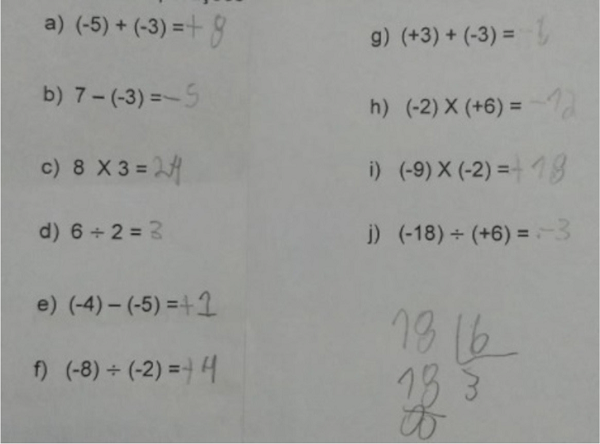 a) (-5) + (-3) = + 8
b) 7 – (-3) = - 5
c) 8 X 3 = 24
d) 6 ÷ 2 = 3
e) (-4) – (-5) = +1
f) (-8) ÷ (-2) = +4
g) (+3) + (-3) =
h) (-2) X (+6) = -12
i) (-9) X (-2) = + 18
j) (-18) ÷ (+6) = -3
18 6
18 3
00